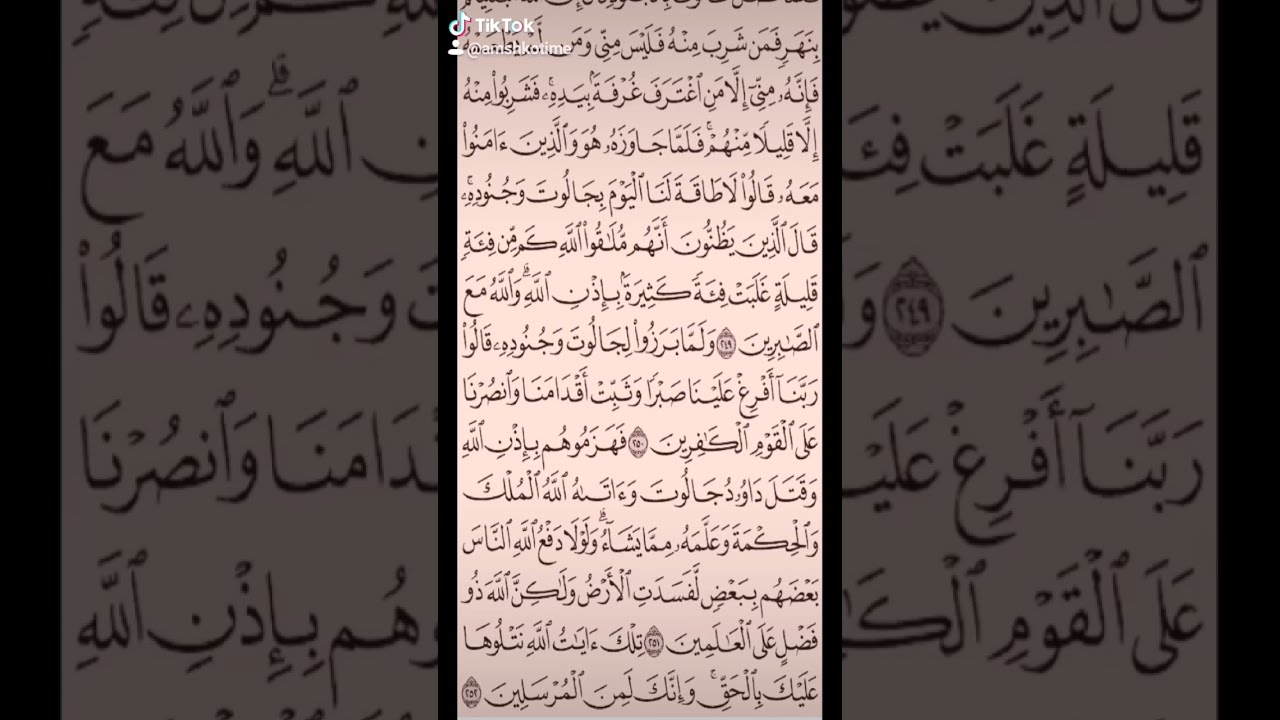 TikTok
@amshkotime
بِنَهَرٍ فَمَن شَرِبَ مِنْهُ فَلَيْسَ مِنِّي وَمَن
فَإِنَّهُۥ مِنِّيٓ إِلَّا مَنِ ٱغْتَرَفَ غُرْفَةَۢ بِيَدِهِۦۚ فَشَرِبُوا۟ مِنْهُ
إِلَّا قَلِيلًا مِّنْهُمْۚ فَلَمَّا جَاوَزَهُۥ هُوَ وَٱلَّذِينَ ءَامَنُوا۟
مَعَهُۥ قَالُوا۟ لَا طَاقَةَ لَنَا ٱلْيَوْمَ بِجَالُوتَ وَجُنُودِهِۦۚ
قَالَ ٱلَّذِينَ يَظُنُّونَ أَنَّهُم مُّلَٰقُوا۟ ٱللَّهِ كَم مِّن فِئَةٍ
قَلِيلَةٍ غَلَبَتْ فِئَةً كَثِيرَةَۢ بِإِذْنِ ٱللَّهِۗ وَٱللَّهُ مَعَ
ٱلصَّٰبِرِينَ ٢٤٩ وَلَمَّا بَرَزُوا۟ لِجَالُوتَ وَجُنُودِهِۦ قَالُوا۟
رَبَّنَآ أَفْرِغْ عَلَيْنَا صَبْرًا وَثَبِّتْ أَقْدَامَنَا وَٱنصُرْنَا
عَلَى ٱلْقَوْمِ ٱلْكَٰفِرِينَ ٢٥٠ فَهَزَمُوهُم بِإِذْنِ ٱللَّهِ
وَقَتَلَ دَاوُۥدُ جَالُوتَ وَءَاتَىٰهُ ٱللَّهُ ٱلْمُلْكَ
وَٱلْحِكْمَةَ وَعَلَّمَهُۥ مِمَّا يَشَآءُۗ وَلَوْلَا دَفْعُ ٱللَّهِ ٱلنَّاسَ
بَعْضَهُم بِبَعْضٍ لَّفَسَدَتِ ٱلْأَرْضُ وَلَٰكِنَّ ٱللَّهَ ذُو
فَضْلٍ عَلَى ٱلْعَٰلَمِينَ ٢٥١ تِلْكَ ءَايَٰتُ ٱللَّهِ نَتْلُوهَا
عَلَيْكَ بِٱلْحَقِّۚ وَإِنَّكَ لَمِنَ ٱلْمُرْسَلِينَ ٢٥٢